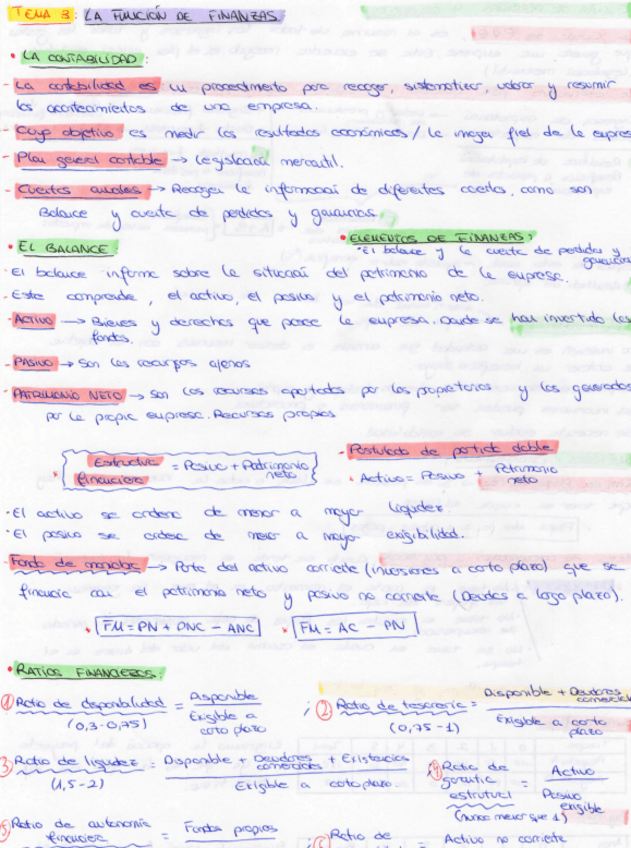 TEMA 3: LA FUNCIÓN DE FINANZAS
• LA CONTABILIDAD:
- La contabilidad es un procedimiento para recoger, sistematizar, valorar y resumir
los acontecimientos de una empresa.
- Cuyo objetivo es medir los resultados económicos / la imagen fiel de la empresa
- Plan general contable → Legislación mercantil.
- Cuentas anuales → Recogen la información de diferentes cuentas, como son
Balance y cuenta de perdidas y ganancias.
• EL BALANCE:
• ELEMENTOS DE FINANZAS:
- El balance y la cuenta de perdidas y
ganancias
• El balance informa sobre la situación del patrimonio de la empresa.
- Este comprende, el activo, el pasivo y el patrimonio neto.
- ACTIVO → Bienes y derechos que posee la empresa. Donde se han invertido los
fondos.
- PASIVO → Son los recursos ajenos
- PATRIMONIO NETO → son los recursos aportados por los propietarios y los generados
por la propia empresa. Recursos propios
* Estructura financiera = Pasivo + Patrimonio neto
- Postulado de partida doble
* Activo = Pasivo + Patrimonio neto
• El activo se ordena de menor a mayor liquidez.
• El pasivo se ordena de menor a mayor exigibilidad.
- Fondo de maniobra → Parte del activo corriente (inversiones a corto plazo) que se
financia con el patrimonio neto y pasivo no corriente (Deudas a largo plazo).
* FM = PN + PNC - ANC * FM = AC - PN
• RATIOS FINANCIEROS:
① Ratio de disponibilidad = Disponible / Exigible a corto plazo ;
(0,3-0,75)
② Ratio de tesorería = Disponible + Deudores comerciales / Exigible a corto plazo
(0,75-1)
③ Ratio de liquidez = Disponible + Deudores comerciales + Existencias / Exigible a corto plazo.
(1,5-2)
④ Ratio de garantía estructural = Activo / Pasivo exigible
(nunca menor que 1)
⑤ Ratio de autonomía financiera = Fondos propios
; ⑥ Ratio de = Activo no corriente